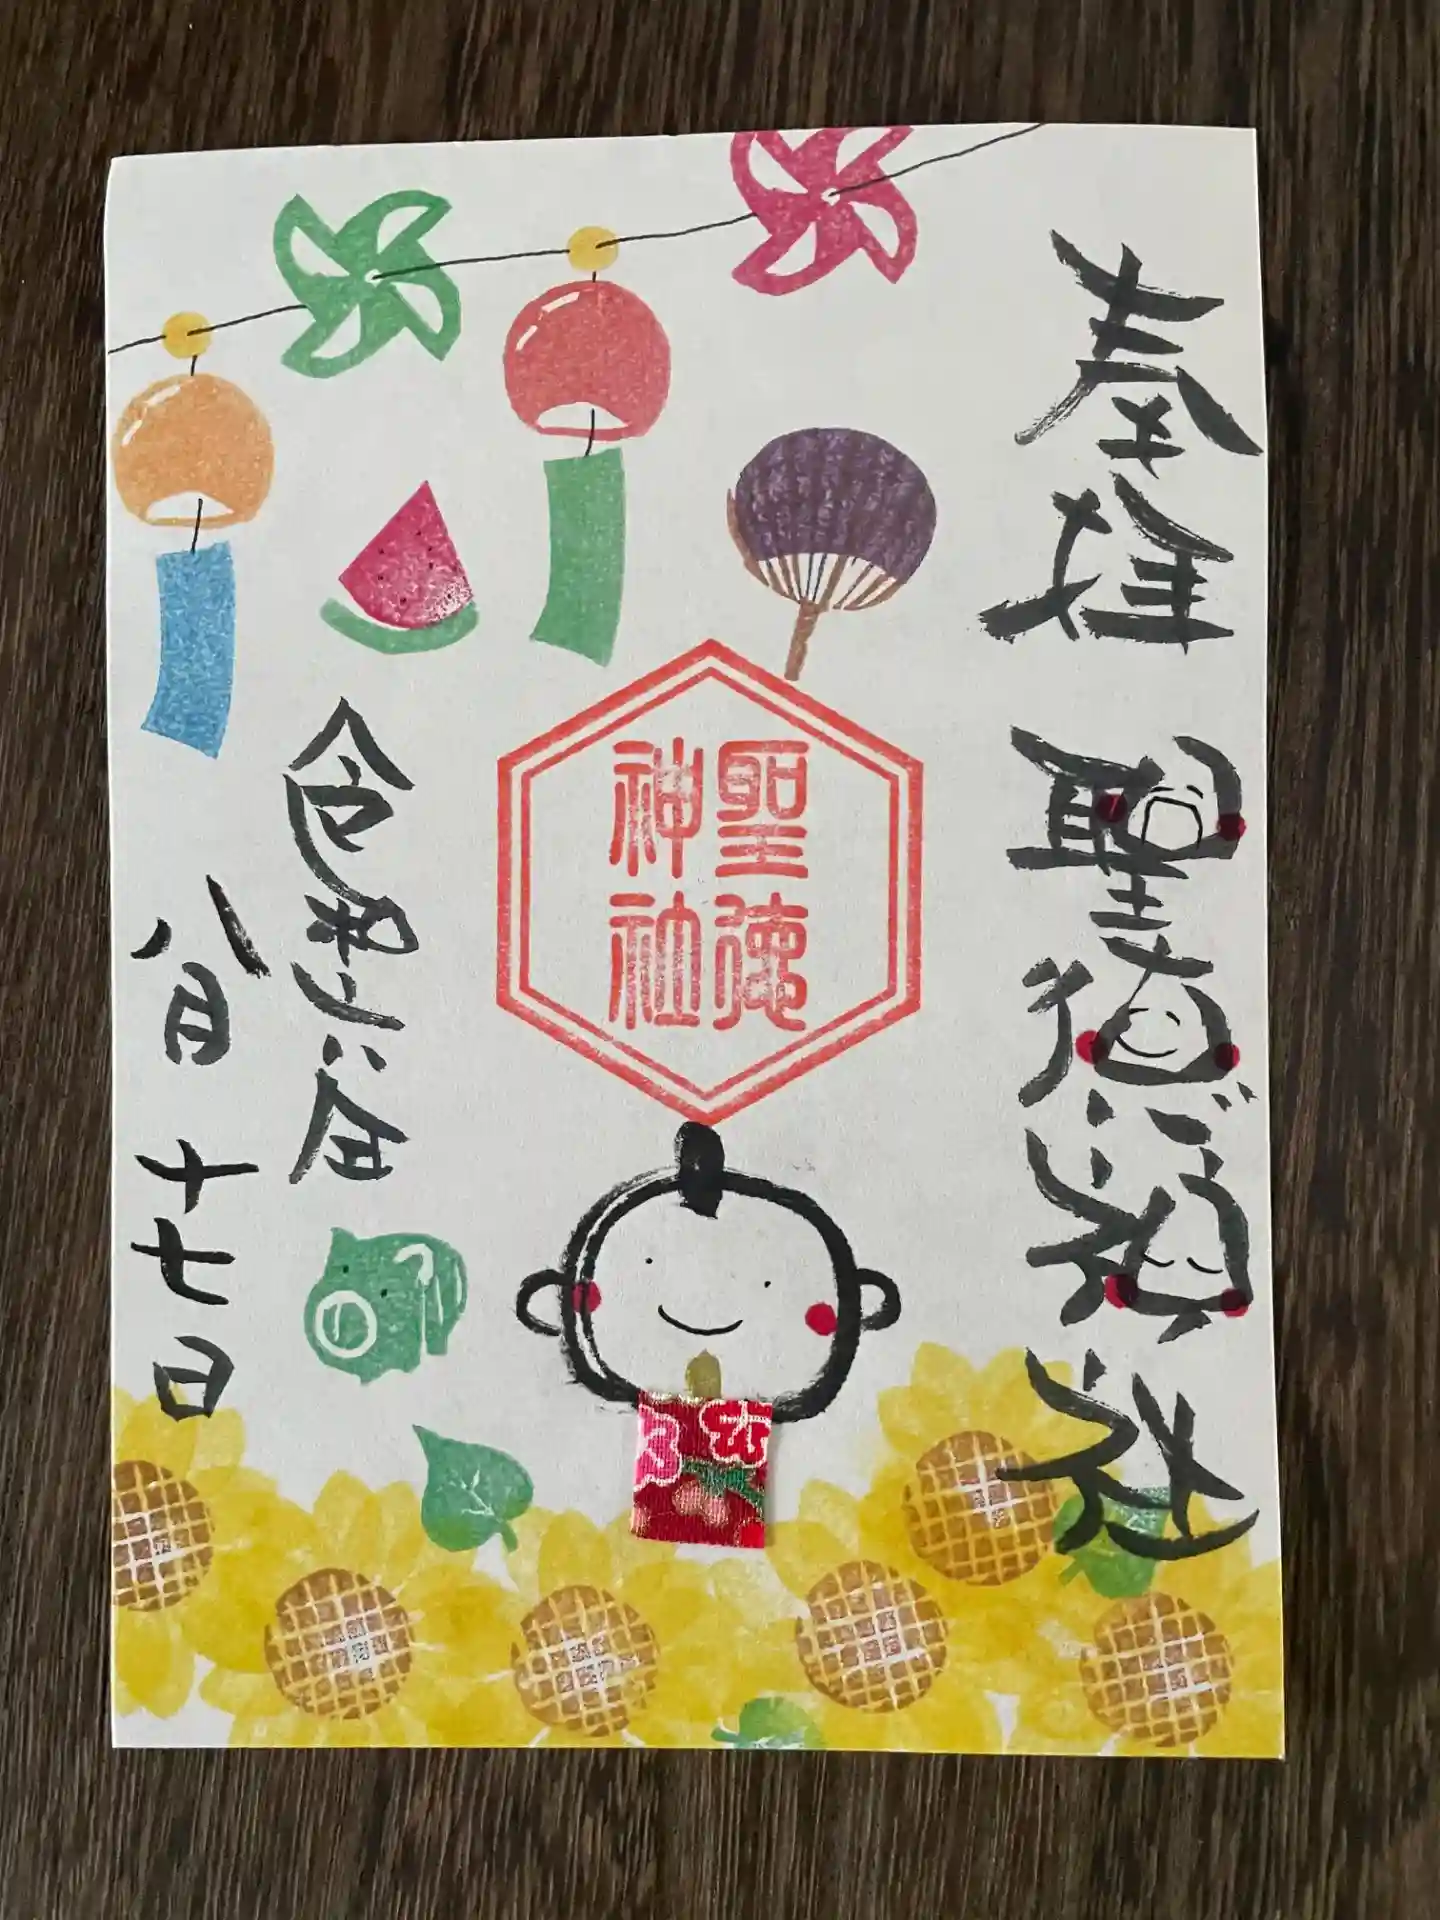 奉拝
聖徳神社
聖徳
神社
令和六年
八月
十七日